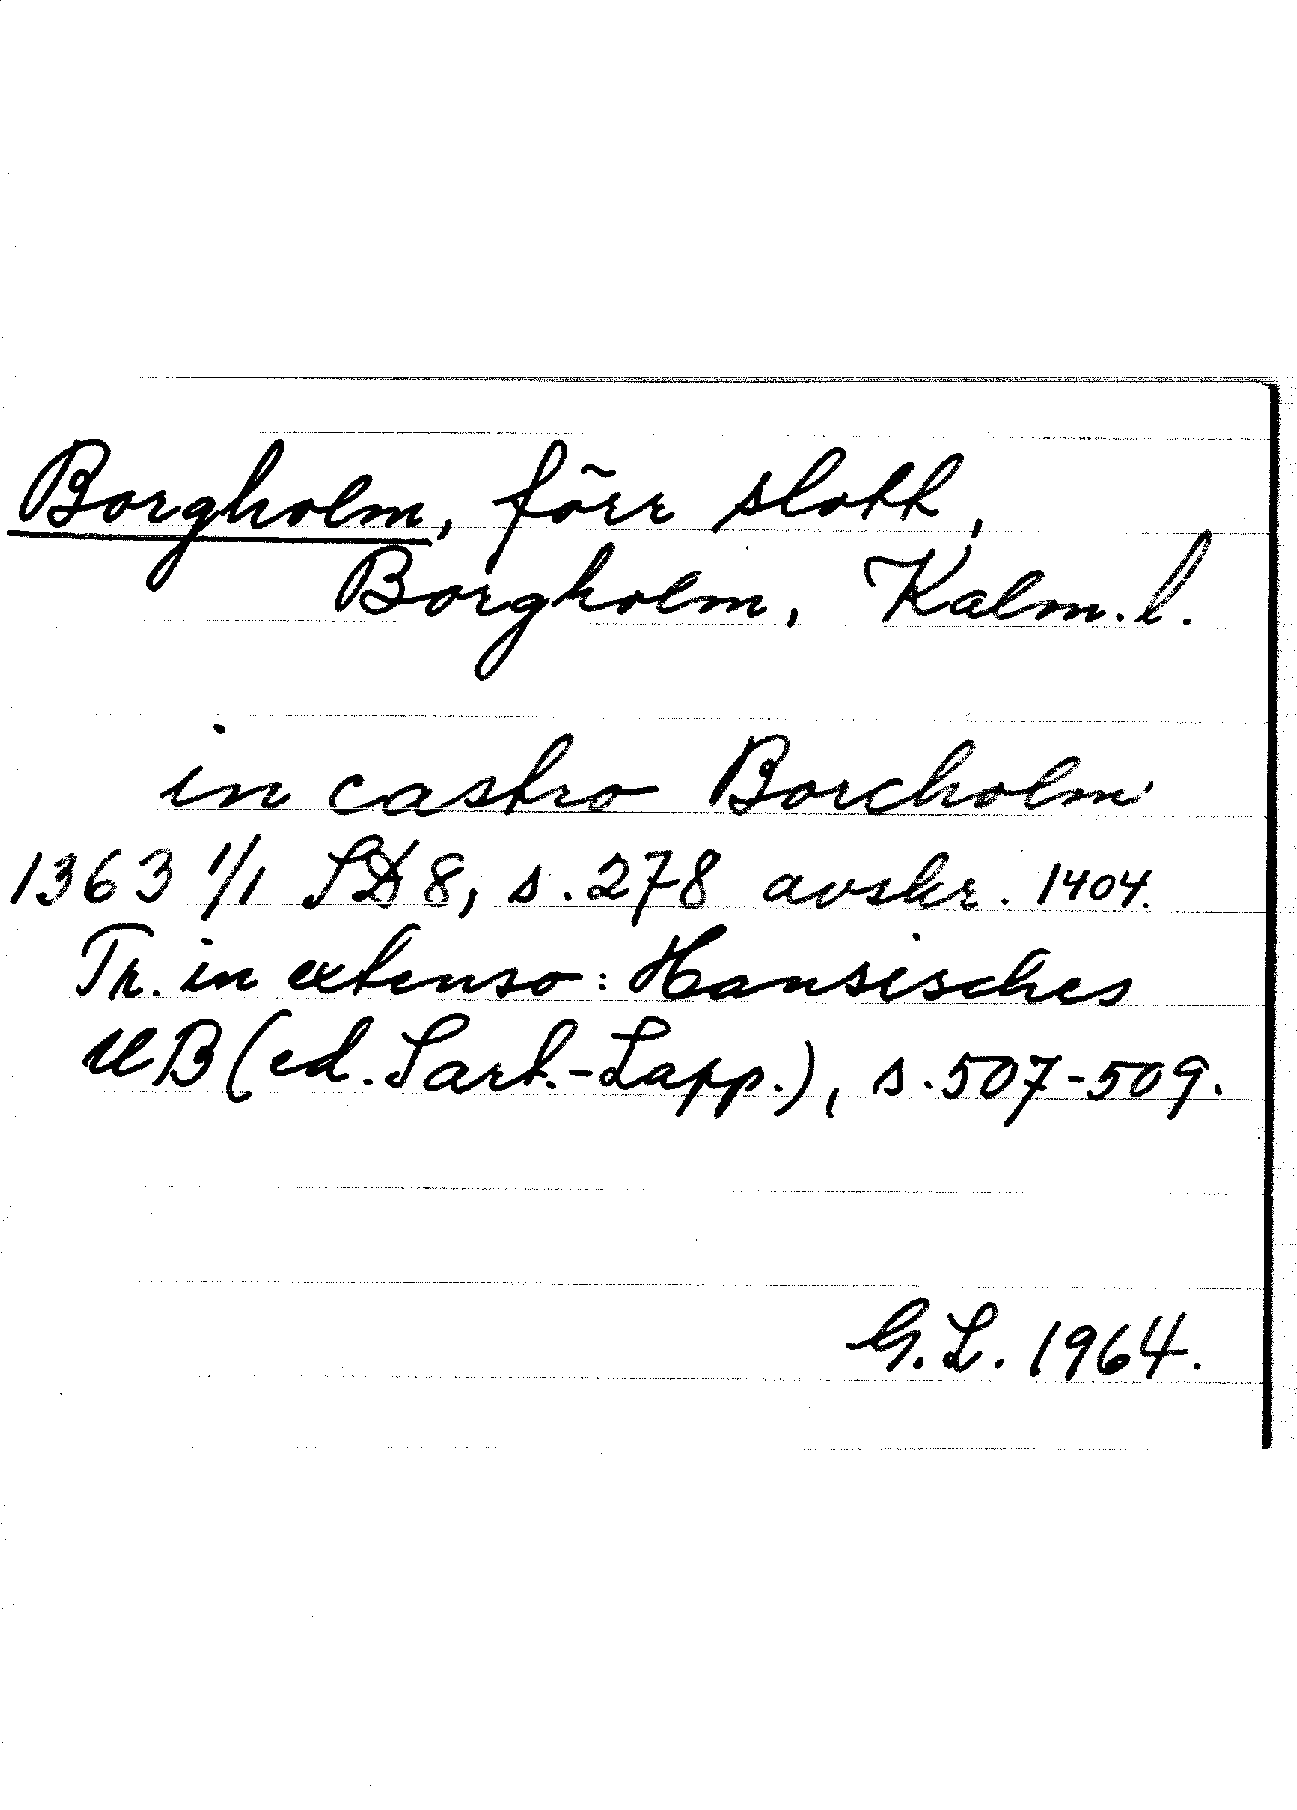 Borgholm, förr slott,
Borgholm, Kalm. l.
in castro Borcholm
1363 1/1 SD 8, s. 278 avskr. 1404.
Tr. in extenso: Hansisches
UB (ed. Sart.-Lapp.), s. 507-509.
G. L. 1964.